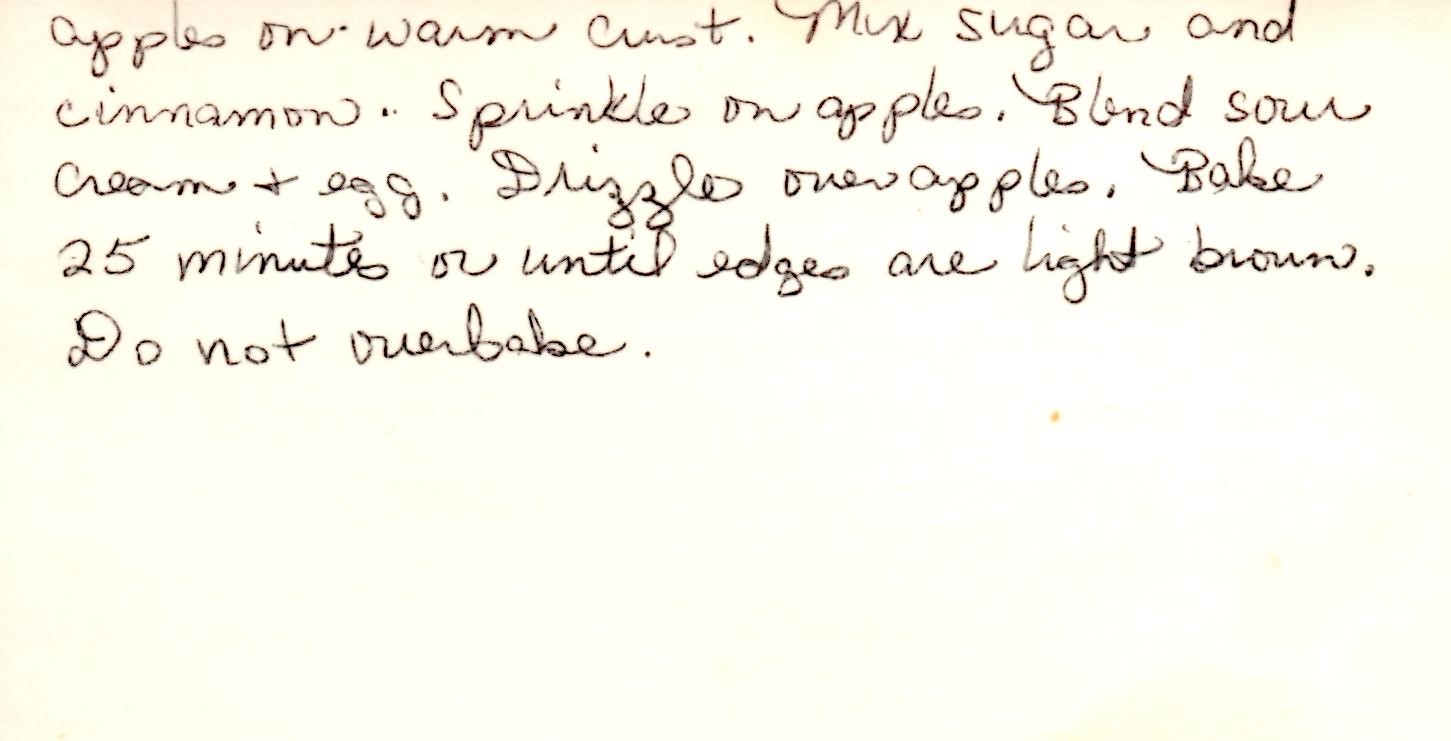 apples on warm crust. Mix sugar and
cinnamon.. Sprinkle on apples. Blend sour
cream + egg. Drizzle over apples. Bake
25 minutes or until edges are light brown.
Do not overbake.